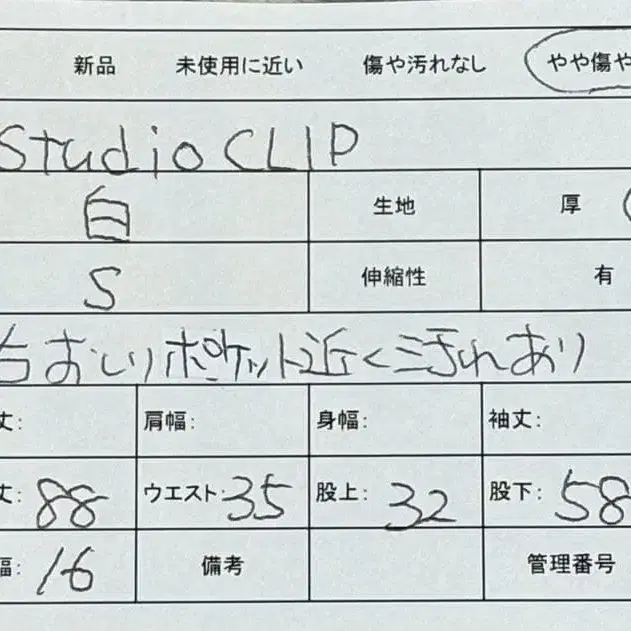 新品 未使用に近い 傷や汚れなし やや傷や
Studio CLIP
白 生地 厚
S 伸縮性 有
右おしりポケット近く汚れあり
丈: 肩幅: 身幅: 袖丈:
丈: 88 ウエスト: 35 股上: 32 股下: 58
幅: 16 備考 管理番号